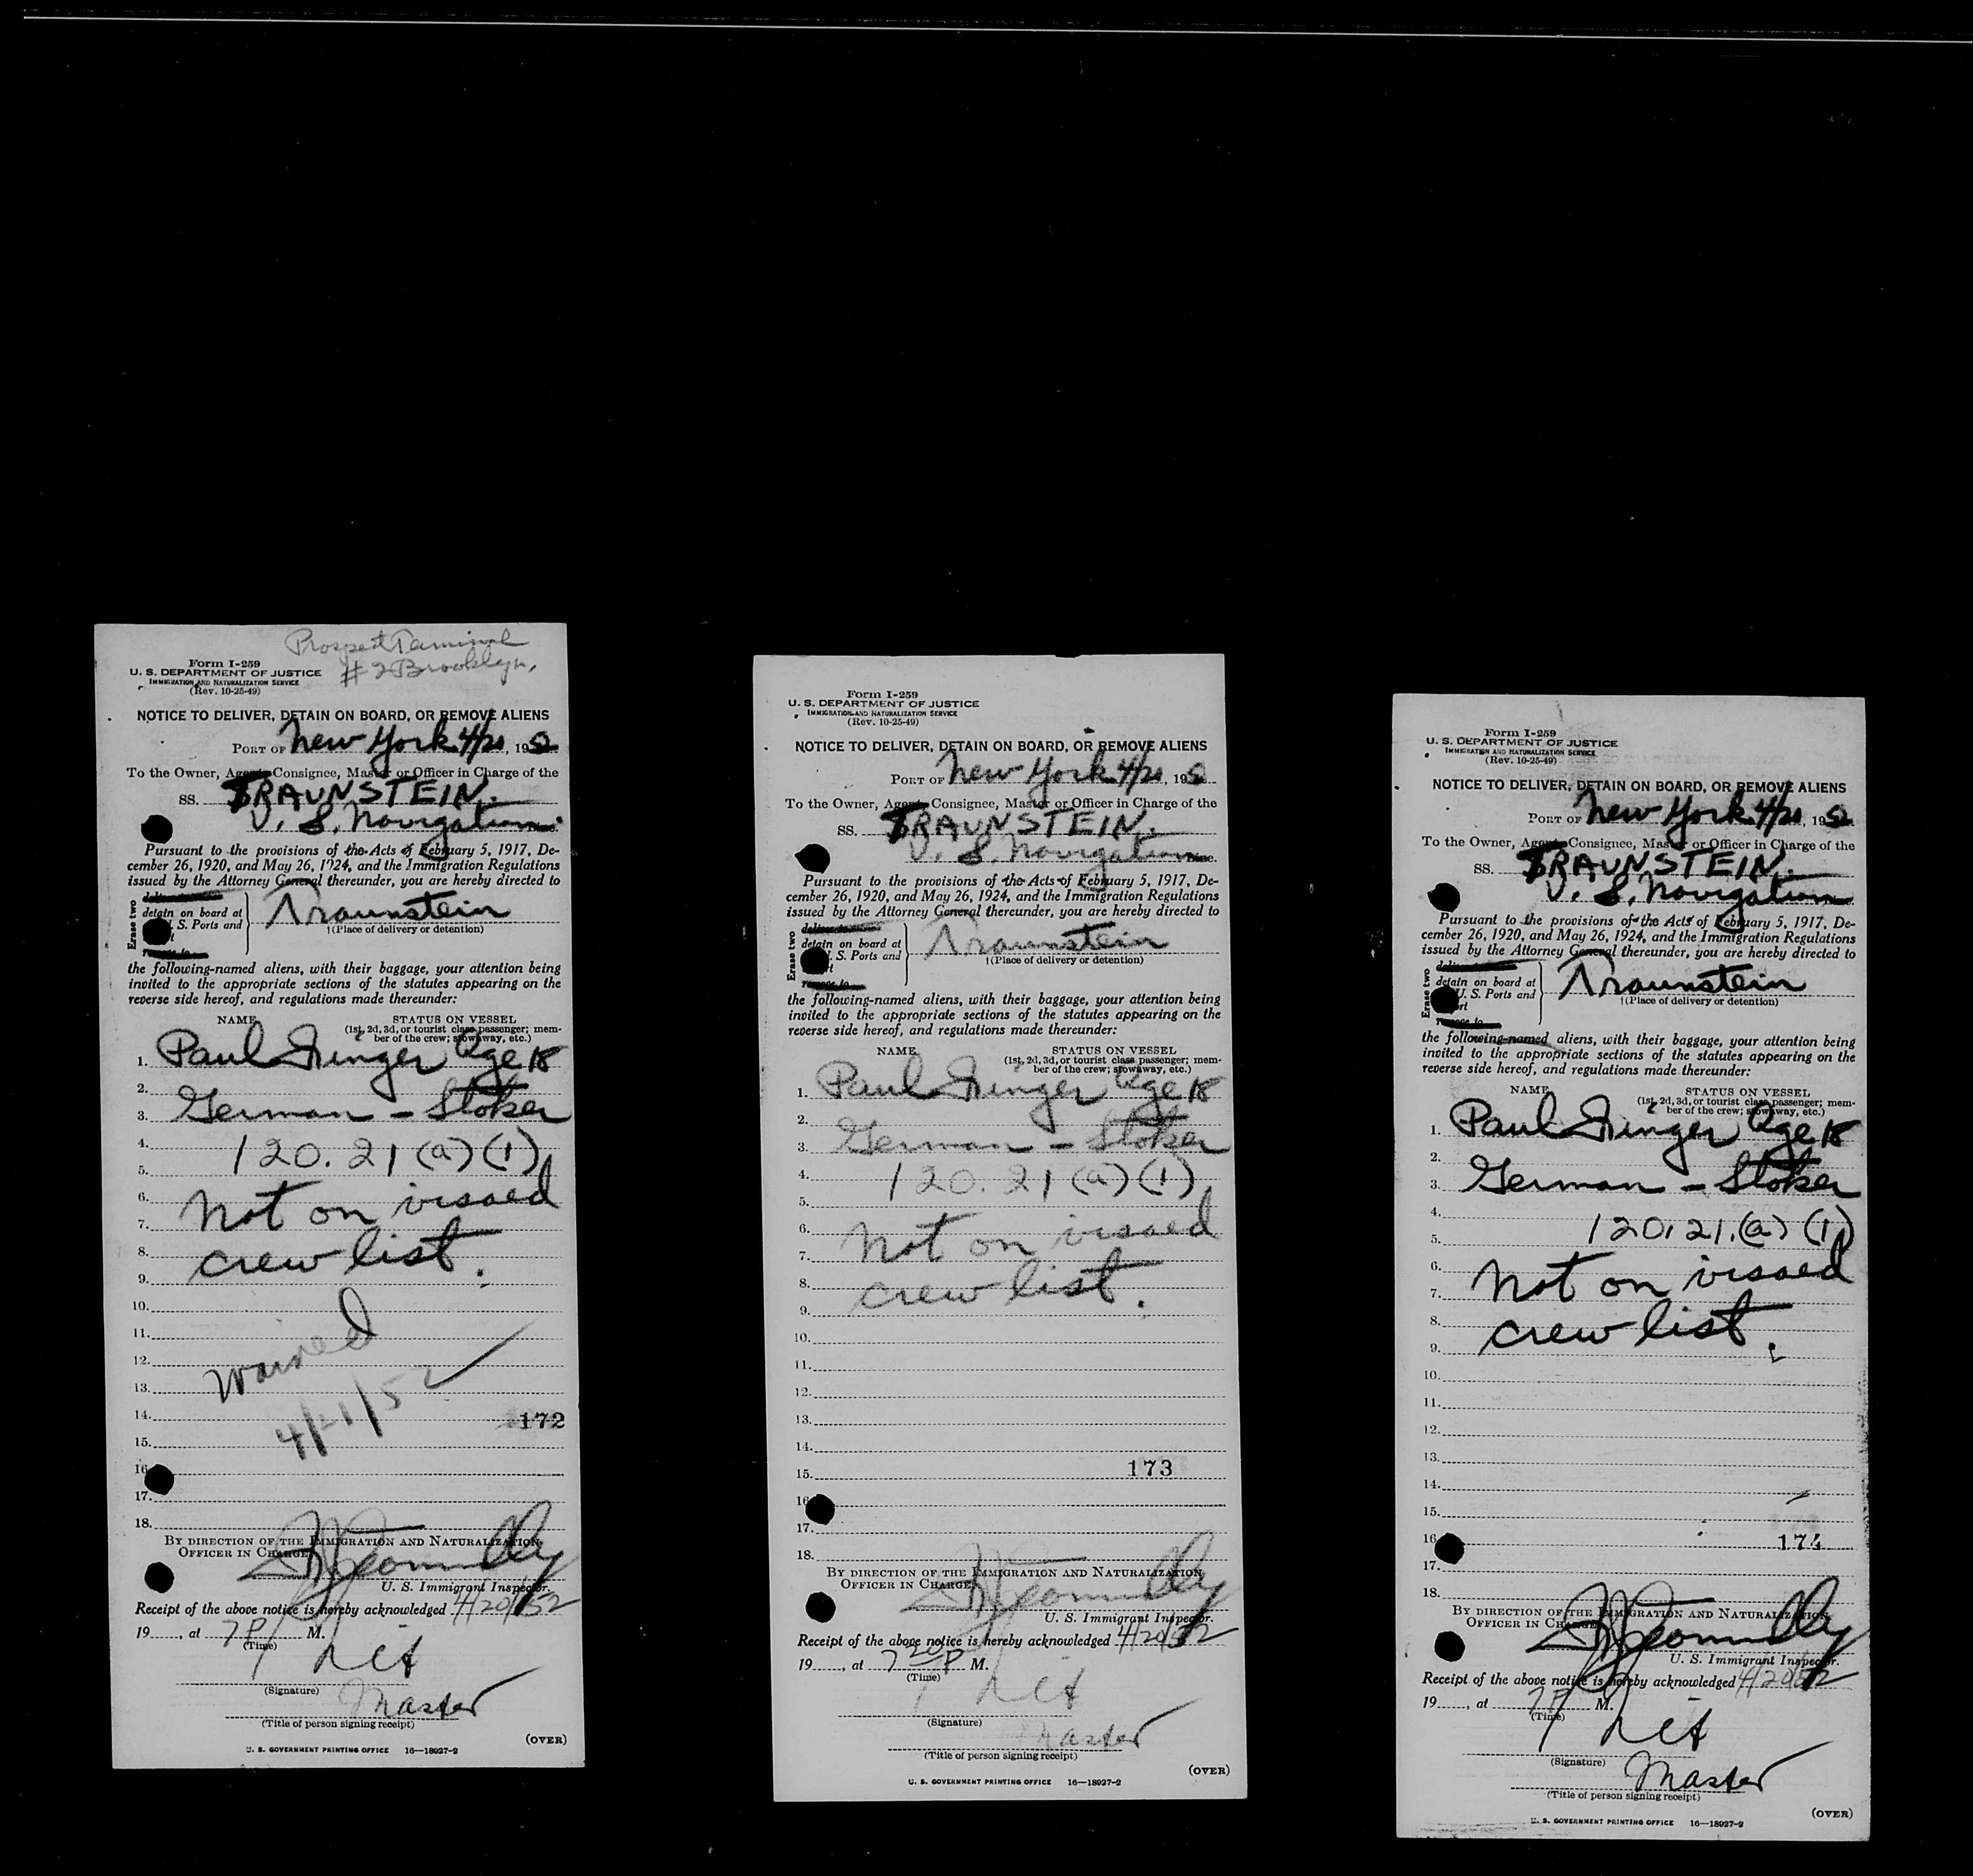 Prospect Terminal
# 2 Brooklyn.
Form I-259
U. S. DEPARTMENT OF JUSTICE
IMMIGRATION AND NATURALIZATION SERVICE
(Rev. 10-25-49)
NOTICE TO DELIVER, DETAIN ON BOARD, OR REMOVE ALIENS
PORT OF New York 4/20, 1952
To the Owner, Agent, Consignee, Master or Officer in Charge of the
SS. TRAUNSTEIN.
U. S. Navigation
Pursuant to the provisions of the Acts of February 5, 1917, De-
cember 26, 1920, and May 26, 1924, and the Immigration Regulations
issued by the Attorney General thereunder, you are hereby directed to
Erase two
detain on board at
S. Ports and
Traunstein
†(Place of delivery or detention)
remove to
the following-named aliens, with their baggage, your attention being
invited to the appropriate sections of the statutes appearing on the
reverse side hereof, and regulations made thereunder:
NAME STATUS ON VESSEL
(1st, 2d, 3d, or tourist class passenger; mem-
ber of the crew; stowaway, etc.)
1. Paul Finger Age 18
2.
3. German - Stoker
4.
5. 120.21 (a) (1)
6.
7. Not on visaed
8.
9. crew list.
10.
11.
12. Waived
13.
14. 4/21/52 172
15.
16
17.
18.
BY DIRECTION OF THE IMMIGRATION AND NATURALIZATION
OFFICER IN CHARGE
U. S. Immigrant Inspector.
Receipt of the above notice is hereby acknowledged 4/20/52
19...., at 7 P M.
(Time)
(Signature)
Master
(Title of person signing receipt)
(OVER)
U. S. GOVERNMENT PRINTING OFFICE 16—18927-2
Form I-259
U. S. DEPARTMENT OF JUSTICE
IMMIGRATION AND NATURALIZATION SERVICE
(Rev. 10-25-49)
NOTICE TO DELIVER, DETAIN ON BOARD, OR REMOVE ALIENS
PORT OF New York 4/20, 195
To the Owner, Agent, Consignee, Master or Officer in Charge of the
SS. TRAUNSTEIN.
U. S. Navigation Line.
Pursuant to the provisions of the Acts of February 5, 1917, De-
cember 26, 1920, and May 26, 1924, and the Immigration Regulations
issued by the Attorney General thereunder, you are hereby directed to
Erase two
detain on board at
S. Ports and
Traunstein
†(Place of delivery or detention)
remove to
the following-named aliens, with their baggage, your attention being
invited to the appropriate sections of the statutes appearing on the
reverse side hereof, and regulations made thereunder:
NAME STATUS ON VESSEL
(1st, 2d, 3d, or tourist class passenger; mem-
ber of the crew; stowaway, etc.)
1. Paul Finger Age 18
2.
3. German - Stoker
4. 120.21 (a) (1)
5.
6. Not on visaed
7.
8. crew list.
9.
10.
11.
12.
13.
14.
15. 173
16
17.
18.
BY DIRECTION OF THE IMMIGRATION AND NATURALIZATION
OFFICER IN CHARGE
U. S. Immigrant Inspector.
Receipt of the above notice is hereby acknowledged 4/20/52
19...., at 7 20 P M.
(Time)
(Signature)
Master
(Title of person signing receipt)
(OVER)
U. S. GOVERNMENT PRINTING OFFICE 16—18927-2
Form I-259
U. S. DEPARTMENT OF JUSTICE
IMMIGRATION AND NATURALIZATION SERVICE
(Rev. 10-25-49)
NOTICE TO DELIVER, DETAIN ON BOARD, OR REMOVE ALIENS
PORT OF New York 4/20, 1952
To the Owner, Agent, Consignee, Master or Officer in Charge of the
SS. TRAUNSTEIN.
U. S. Navigation
Pursuant to the provisions of the Acts of February 5, 1917, De-
cember 26, 1920, and May 26, 1924, and the Immigration Regulations
issued by the Attorney General thereunder, you are hereby directed to
Erase two
detain on board at
U. S. Ports and
Traunstein
†(Place of delivery or detention)
remove to
the following-named aliens, with their baggage, your attention being
invited to the appropriate sections of the statutes appearing on the
reverse side hereof, and regulations made thereunder:
NAME STATUS ON VESSEL
(1st, 2d, 3d, or tourist class passenger; mem-
ber of the crew; stowaway, etc.)
1. Paul Finger Age 18
2.
3. German - Stoker
4.
5. 120.21.(a) (1)
6.
7. Not on visaed
8.
9. crew list.
10.
11.
12.
13.
14.
15.
16 174
17.
18.
BY DIRECTION OF THE IMMIGRATION AND NATURALIZATION
OFFICER IN CHARGE
U. S. Immigrant Inspector.
Receipt of the above notice is hereby acknowledged 4/20/52
19...., at 7 P M.
(Time)
(Signature)
Master
(Title of person signing receipt)
(OVER)
U. S. GOVERNMENT PRINTING OFFICE 16—18927-2